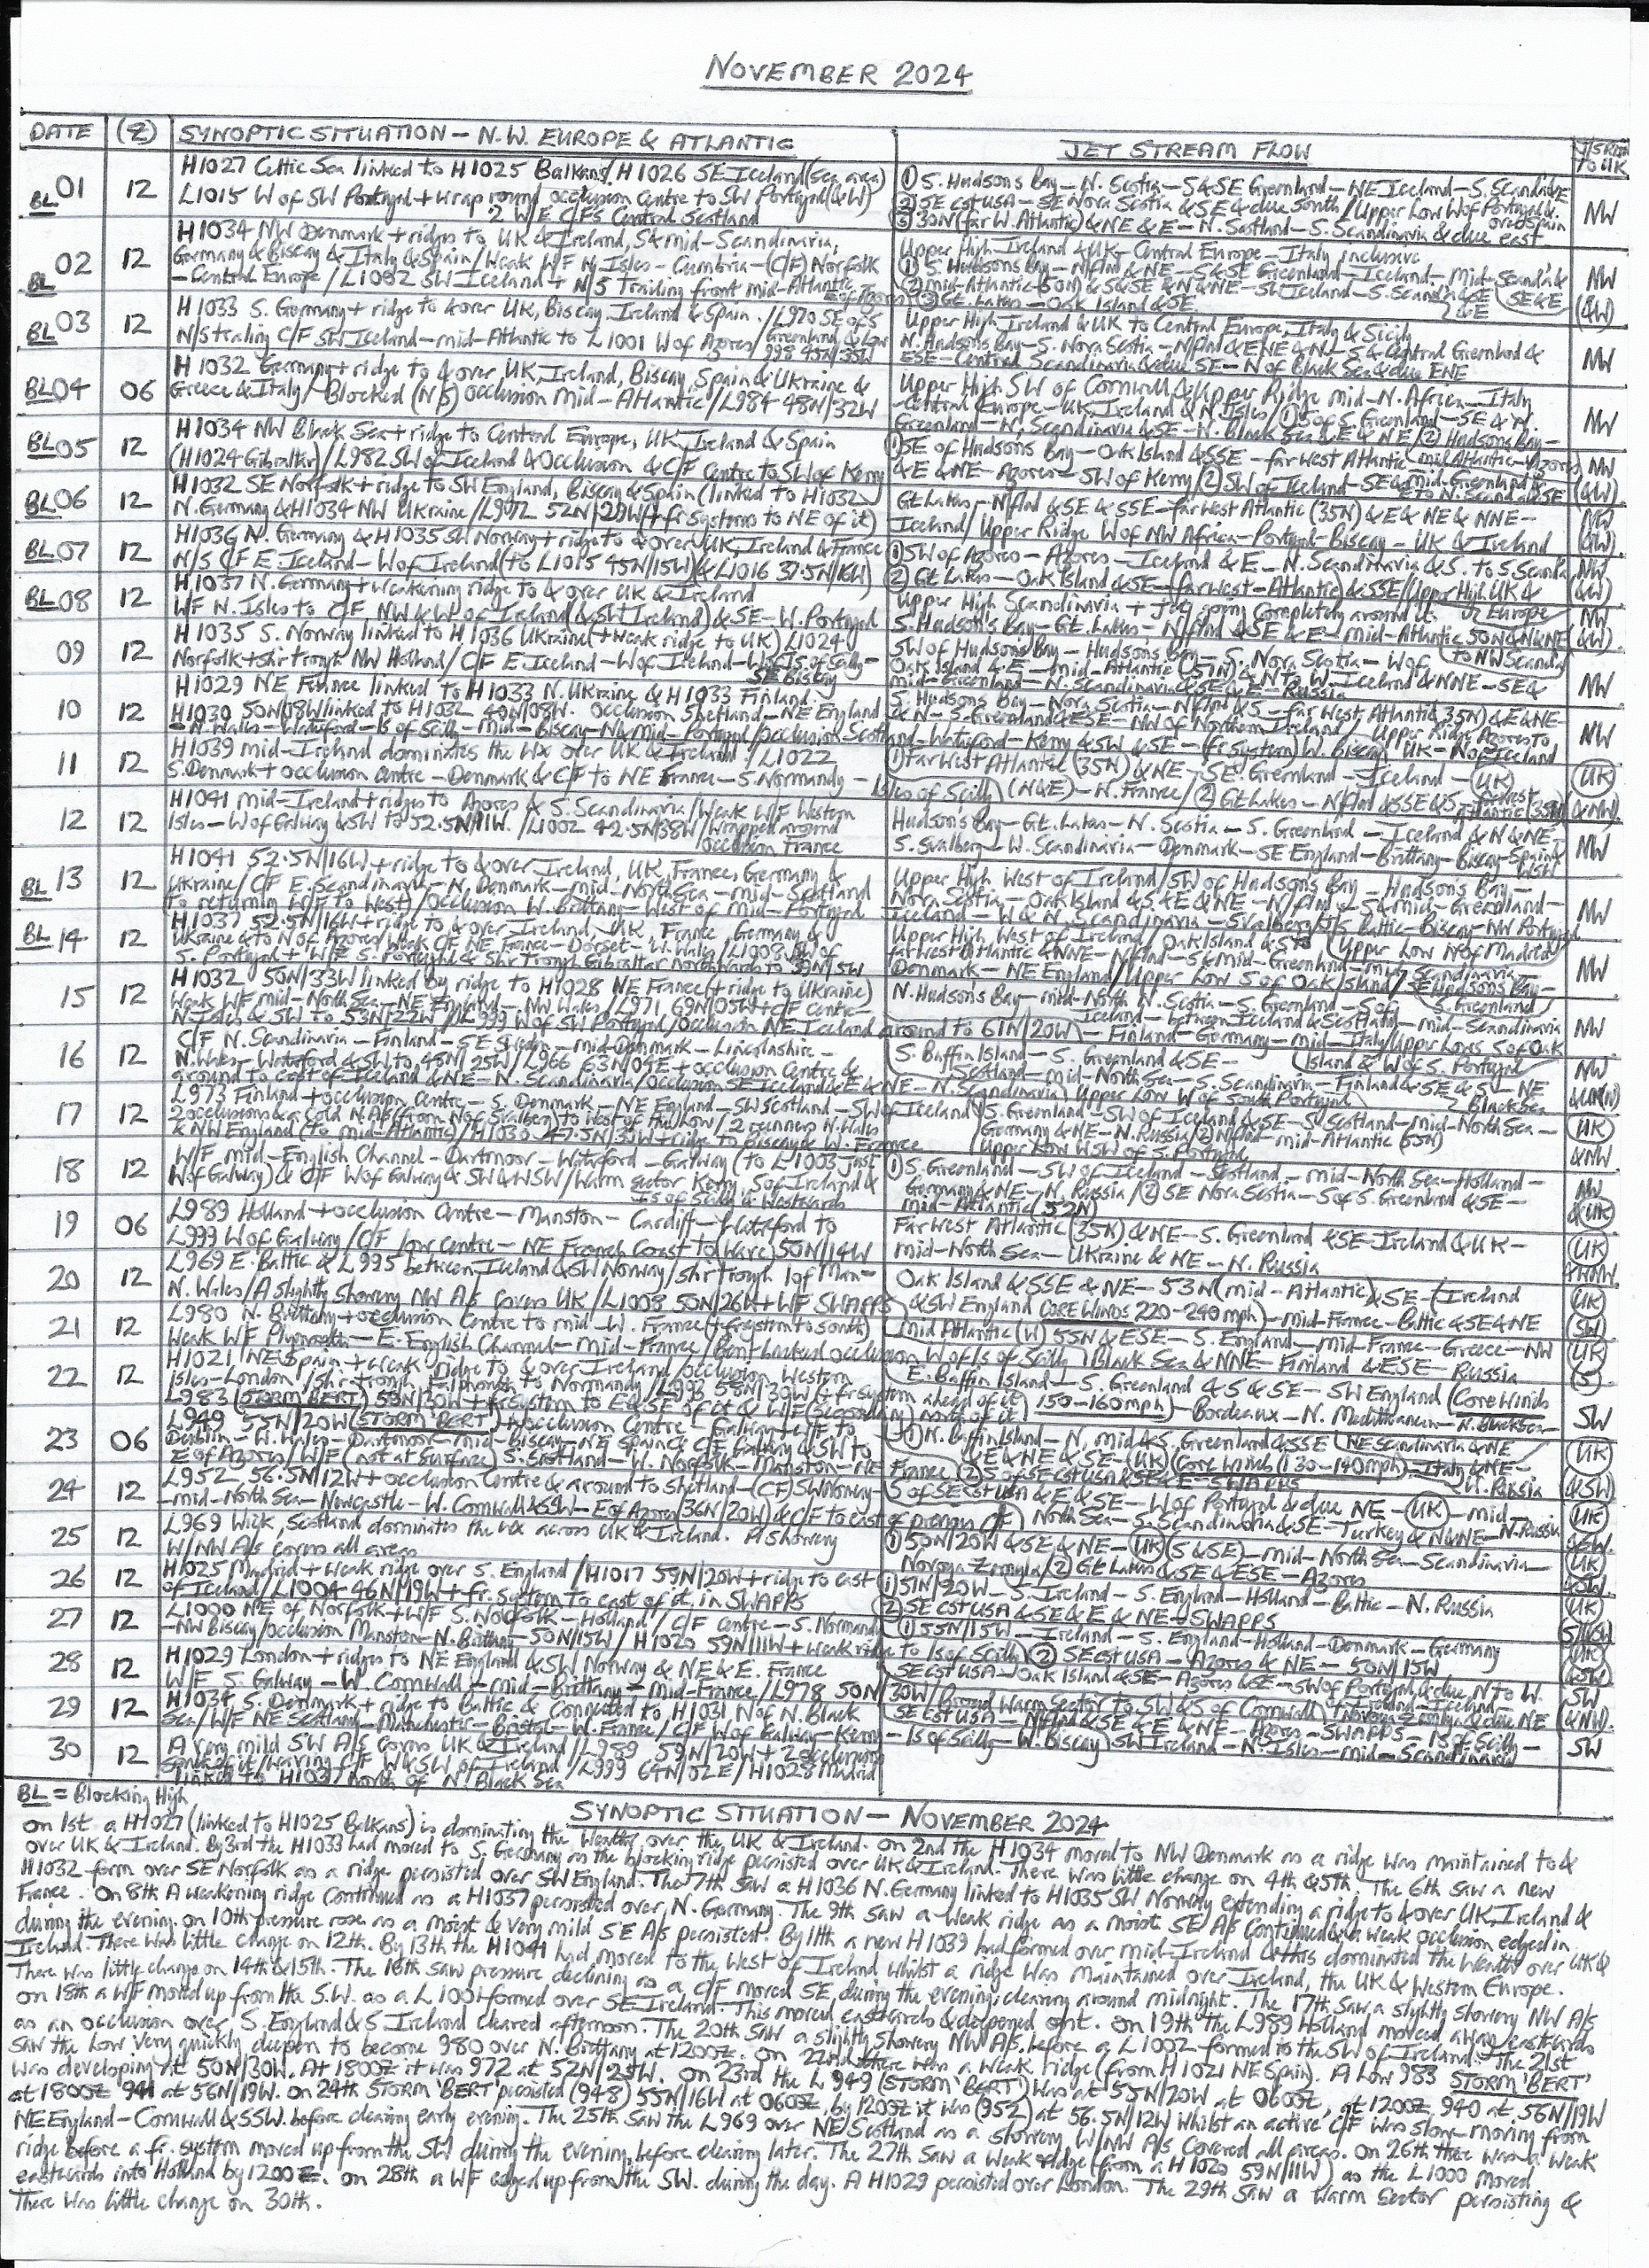 NOVEMBER 2024
DATE (Z) SYNOPTIC SITUATION – N.W. EUROPE & ATLANTIC JET STREAM FLOW TO UK
BL 01 12 H1027 Celtic Sea linked to H1025 Balkans/H1026 SE Iceland (sea area)
L1015 W of SW Portugal + wrap round occlusion Centre to SW Portugal (& W)
2 W/E C/Fs Central Scotland
① S. Hudsons Bay – N. Scotia – S & SE Greenland – NE Iceland – S. Scandavie
② SE cst USA – SE Nova Scotia & SE & due South / Upper Low W of Portugal &
③ 30N (far W. Atlantic) & NE & E – N. Scotland – S. Scandinavia & due east over Spain
NW
BL 02 12 H1034 NW Denmark + ridges to UK & Ireland, S & mid-Scandinavia,
Germany & Biscay & Italy & Spain / Weak W/F N. Isles – Cumbria – (C/F) Norfolk
– Central Europe / L1002 SW Iceland + N/S Trailing front mid-Atlantic
Upper High – Ireland & UK – Central Europe – Italy inclusive
① S. Hudsons Bay – N/flnd & NE – S & SE Greenland – Iceland – mid-Scanda &
② mid-Atlantic (50N) & S & SE & N & NE – SW Iceland – S. Scanda & SE SE & E
③ Gt. Lakes – Oak Island & SE
NW
BL 03 12 H1033 S. Germany + ridge to & over UK, Biscay, Ireland & Spain. / L970 SE of S
N/S trailing C/F SW Iceland – mid-Atlantic to L1001 W of Azores / Greenland & Low 998 45N/35W
Upper High Ireland & UK to Central Europe, Italy & Sicily
N. Hudsons Bay – S. Nova Scotia – N/flnd & ENE & N – S & Central Greenland &
ESE – Central Scandinavia & due SE – N of Black Sea & due ENE
(&W) NW
BL 04 06 H1032 Germany + ridge to & over UK, Ireland, Biscay, Spain & Ukraine &
Greece & Italy / Blocked (N/S) occlusion Mid-Atlantic / L984 48N/32W
Upper High SW of Cornwall & Upper Ridge mid-N. Africa – Italy
– Central Europe – UK, Ireland & N. Isles / ① S of S. Greenland – SE & M.
Greenland – N. Scandinavia & SE – N. Black Sea & E & NE / ② Hudsons Bay –
NW
BL 05 12 H1034 NW Black Sea + ridge to Central Europe, UK, Ireland & Spain
(H1024 Gibraltar) / L982 SW of Iceland & Occlusion & C/F Centre to SW of Kerry
① SE of Hudsons Bay – Oak Island & SSE – far west Atlantic – mid Atlantic – Azores
& E & NE – Azores – SW of Kerry / ② SW of Iceland – SE & mid-Greenland &
E to N. Scanda & SE
NW (&W)
BL 06 12 H1032 SE Norfolk + ridge to SW England, Biscay & Spain (linked to H1032
N. Germany & H1034 NW Ukraine / L972 52N/29W (+ fr systems to NE of it)
Gt Lakes – N/flnd & SE & SSE – far west Atlantic (35N) & E & NE & NNE –
Iceland / Upper Ridge W of NW Africa – Portugal – Biscay – UK & Ireland
NW (&W)
BL 07 12 H1036 N. Germany & H1035 SW Norway + ridge to & over UK, Ireland & France
N/S C/F E. Iceland – W of Ireland (to L1015 45N/15W) & L1016 37.5N/16W)
① SW of Azores – Azores – Iceland & E – N. Scandinavia & S. to S Scanda
② Gt Lakes – Oak Island & SE – far west-Atlantic & SSE / Upper High UK & Europe
NW (&W)
BL 08 12 H1037 N. Germany + weakening ridge to & over UK & Ireland
W/F N. Isles to C/F NW & W of Ireland (& SW Ireland) & SE – W. Portugal
Upper High Scandinavia + jet going completely around it.
S. Hudson's Bay – Gt. Lakes – N/flnd & SE & E – mid-Atlantic 50N & N & NE
to NW Scanda
NW (&W)
09 12 H1035 S. Norway linked to H1036 Ukraine (+ weak ridge to UK) L1024
Norfolk + shr trough NW Holland / C/F E. Iceland – W of Ireland – W of Is. of Scilly –
SE Biscay
SW of Hudsons Bay – Hudsons Bay – S. Nova Scotia – W of
Oak Island & E – mid-Atlantic (51N) & N to W. Iceland & NNE – SE &
mid-Greenland – N. Scandinavia & SE & E – Russia
NW
10 12 H1029 NE France linked to H1033 N. Ukraine & H1033 Finland.
H1030 50N/08W linked to H1032 40N/08W. Occlusion Shetland – NE England
– N. Wales – Waterford – Is of Scilly – Mid-Biscay – N & mid-Portugal / Occlusion Scotland – Waterford – Kerry & SW & SE – (fr System) W. Biscay
S. Hudsons Bay – Nova Scotia – N/flnd & S – far West Atlantic 35N) & E & NE
& N – S. Greenland & ESE – NW of Northern Ireland / Upper Ridge Azores to
UK – N of Iceland
NW
11 12 H1039 mid-Ireland dominates the wx over UK & Ireland / L1022
S. Denmark + occlusion Centre – Denmark & C/F to NE France – S. Normandy – Isles of Scilly
① Far West Atlantic (35N) & NE – SE. Greenland – Iceland – (UK)
(N & E) – N. France / ② Gt Lakes – N/flnd & SSE & S – far west Atlantic (35N)
UK (& NW)
12 12 H1041 mid-Ireland + ridges to Azores & S. Scandinavia / Weak W/F Western
Isles – W of Galway & SW to 52.5N/11W. / L1002 42.5N/38W / Wrapped around
occlusion France
Hudsons Bay – Gt. Lakes – N. Scotia – S. Greenland – Iceland & N & NE
S. Svalberg – W. Scandinavia – Denmark – SE England – Brittany – Biscay – Spain WSW
NW
BL 13 12 H1041 52.5N/16W + ridge to & over Ireland, UK, France, Germany &
Ukraine / C/F E. Scandinavia – N. Denmark – mid-North Sea – mid-Scotland
(to returning W/F to West) / Occlusion W. Brittany – West of mid-Portugal
Upper High West of Ireland / SW of Hudsons Bay – Hudsons Bay –
Nova Scotia – Oak Island & S & E & NE – N/flnd & S & mid-Greenland –
Iceland – W & N. Scandinavia – Svalberg / S. Baltic – Biscay – NW Portugal
NW
BL 14 12 H1037 52.5N/16W + ridge to & over Ireland, UK, France, Germany &
Ukraine & to N of Azores / Weak C/F NE France – Dorset – W. Wales / L1008 SW of
S. Portugal + W/F S. Portugal & Shr Trough Gibraltar northwards to 39N/5W
Upper High West of Ireland / Oak Island & S to Upper Low N of Madrid
far west Atlantic & NNE – N/flnd – S & mid-Greenland – mid Scandinavia –
Denmark – NE England / Upper Low S of Oak Island / SE Hudsons Bay –
S. Greenland
NW
15 12 H1032 50N/33W linked by ridge to H1028 NE France (+ ridge to Ukraine)
Weak W/F mid-North Sea – NE England – NW Wales / L971 69N/05W + C/F Centre –
N. Isles & SW to 53N/22W / L999 W of SW Portugal / Occlusion NE Iceland around to 61N/20W
N. Hudson's Bay – mid-North W. Scotia – S. Greenland – S of
Iceland – between Iceland & Scotland – mid-Scandinavia
– Finland – Germany – mid-Italy / Upper Lows S of Oak Island & W of S. Portugal
NW
16 12 C/F N. Scandinavia – Finland – SE Sweden – mid-Denmark – Lincolnshire –
N. Wales – Waterford & SW to 48N/25W / L966 63N/05E + occlusion Centre &
around to east of Iceland & NE – N. Scandinavia / Occlusion SE Iceland & E & NE – N. Scandinavia
S. Baffin Island – S. Greenland & SE –
Scotland – mid-North Sea – S. Scandinavia – Finland & SE & S – NE Black Sea
Upper Low W of South Portugal
NW & UK(N)
17 12 L973 Finland + occlusion Centre – S. Denmark – NE England – SW Scotland – SW of Iceland
2 occlusions & a Cold N. A/S (from N of Svalberg) to west of the low / 2 troughs N. Wales
& NW England (to mid-Atlantic) / H1030 47.5N/30W + ridge to Biscay & W. France
S. Greenland – SW of Iceland & SE – S. Scotland – mid-North Sea –
Germany & NE – N. Russia / ② N/flnd – mid-Atlantic (55N)
Upper Low WSW of S. Portugal
UK & NW
18 12 W/F mid-English Channel – Dartmoor – Waterford – Galway (to L1003 Just
W of Galway) & C/F W of Galway & SW & WSW / Warm sector Kerry, S of Ireland &
Is of Scilly & Westwards
① S. Greenland – SW of Iceland – Scotland – mid-North Sea – Holland –
Germany & NE – N. Russia / ② SE Nova Scotia – S of S. Greenland & SE –
mid-Atlantic (52N)
NW & UK
19 06 L989 Holland + occlusion Centre – Manston – Cardiff – Waterford to
L999 W of Galway / C/F low centre – NE French Coast to (wave) 50N/14W
Far West Atlantic (35N) & NE – S. Greenland & SE – Ireland & UK –
mid-North Sea – Ukraine & NE – N. Russia
UK & NW
20 12 L969 E. Baltic & L995 between Iceland & SW Norway / shr trough I of Man –
N. Wales / A slightly Showery NW A/S covers UK / L1008 50N/26W + W/F SWAPPS
Oak Island & SSE & NE – 53N (mid-Atlantic) & SE – (Ireland
& SW England CORE WINDS 220-240 mph) – mid-France – Baltic & SE & NE
UK SW
21 12 L980 N. Brittany + occlusion Centre to mid-W. France (+ fr system to south)
Weak W/F Plymouth – E. English Channel – Mid-France / Bent backed occlusion W of Is of Scilly
mid Atlantic (W) 55N & ESE – S. England – mid-France – Greece – NW
Black Sea & NNE – Finland & ESE – Russia
UK S
22 12 H1021 NE Spain + weak ridge to & over Ireland / occlusion Western
Isles – London / shr trough Falmouth to Normandy / L993 58N/30W + fr system ahead of it
L983 (STORM BERT) 50N/30W + fr system to E & SE of it & W/F (Secondary) north of it
E. Baffin Island – S. Greenland & S & SE – SW England (Core Winds
150-160mph) – Bordeaux – N. Mediterranean – N. Black Sea
SW
23 06 L949 55N/20W (STORM 'BERT') + occlusion Centre – Galway + W/F to
Dublin – W. Wales – Dartmoor – mid-Biscay – NE Spain & C/F Galway & SW to
E of Azores / W/F (not at Surface) S. Scotland – W. Norfolk – Manston – NE France
① N. Baffin Island – N, mid & S. Greenland & SSE
& E & NE & SE – (UK) (Core Winds (130-140mph) – Italy & NE –
NE Scandinavia & NE
② S of SE cst USA & SE & E – SWAPPS
UK (& SW)
24 12 L952 56.5N/12W + occlusion Centre & around to Shetland – (C/F) SW Norway –
– mid-North Sea – Newcastle – W. Cornwall & SSW – E of Azores (36N/20W) & C/F to east of previous C/F
S of SE cst USA & E & SE – W of Portugal & due NE – (UK) – mid
North Sea – S. Scandinavia & SE – Turkey & N & NE – N. Russia
UK & SW
25 12 L969 Wick, Scotland dominates the wx across UK & Ireland. A showery
W/NW A/S covers all areas
① 50N/20W & SE & NE – (UK) (S & SE) – mid-North Sea – Scandinavia –
Novoya Zemlya / ② Gt Lakes & SE & ESE – Azores
UK & SW
26 12 H1025 Madrid + weak ridge over S. England / H1017 59N/20W + ridge to east
of Iceland / L1004 46N/19W + fr. system to east of it in SWAPPS
① 51N/20W – S. Ireland – S. England – Holland – Baltic – N. Russia
② SE cst USA & SE & E & NE – SWAPPS
UK
27 12 L1000 NE of Norfolk + W/F S. Norfolk – Holland / C/F centre – S. Normandy
– NW Biscay / occlusion Manston – N. Brittany – 50N/15W / H1020 59N/11W + weak ridge to Is of Scilly
① 55N/15W – Ireland – S. England – Holland – Denmark – Germany
② SE cst USA – Azores & NE – 50N/15W
UK (SW)
28 12 H1029 London + ridges to NE England & SW Norway & NE & E. France
W/F S. Galway – W. Cornwall – mid-Brittany – mid-France / L978 50N/30W / Broad Warm Sector to SW & S of Cornwall
SE cst USA – Oak Island & SE – Azores & SE – SW of Portugal & due N to W.
of Ireland – Iceland – Novoya Zemlya & due NE
SW (& NW)
29 12 H1034 S. Denmark + ridge to Baltic & Connected to H1031 N of N. Black
Sea / W/F NE Scotland – Manchester – Bristol – W. France / C/F W of Galway – Kerry – Is of Scilly – W. Biscay
SE cst USA – N/flnd & SE & E & NE – Azores – SWAPPS – Is of Scilly –
SW Ireland – N. Isles – mid-Scandinavia
SW
30 12 A very mild SW A/S covers UK & Ireland / L989 59N/20W + 2 occlusions
south of it / waving C/F W & SW of Ireland / L999 64N/02E / H1028 Madrid
linked to H1031 north of N. Black Sea
BL = Blocking High
SYNOPTIC SITUATION – NOVEMBER 2024
On 1st a H1027 (linked to H1025 Balkans) is dominating the Weather over the UK & Ireland. On 2nd the H1034 moved to NW Denmark as a ridge was maintained to &
over UK & Ireland. By 3rd the H1033 had moved to S. Germany as the blocking ridge persisted over UK & Ireland. There was little change on 4th & 5th. The 6th saw a new
H1032 form over SE Norfolk as a ridge persisted over SW England. The 7th saw a H1036 N. Germany linked to H1035 SW Norway extending a ridge to & over UK, Ireland &
France. On 8th A weakening ridge continued as a H1037 persisted over N. Germany. The 9th saw a weak ridge as a moist SE A/S continued & a weak occlusion edged in
during the evening. On 10th pressure rose as a moist & very mild SE A/S persisted. By 11th a new H1039 had formed over mid-Ireland & this dominated the weather over UK &
Ireland. There was little change on 12th. By 13th the H1041 had moved to the West of Ireland whilst a ridge was maintained over Ireland, the UK & Western Europe.
There was little change on 14th & 15th. The 16th saw pressure declining as a C/F moved SE, during the evening, clearing around midnight. The 17th saw a slightly showery NW A/S
on 18th a W/F moved up from the S.W. as a L1001 formed over SE Ireland. This moved eastwards & deepened snt. On 19th the L989 Holland moved away eastwards
as an occlusion over S. England & S Ireland cleared afternoon. The 20th saw a slightly showery NW A/S before a L1002 formed to the SW of Ireland. The 21st
saw the Low very quickly deepen to become 980 over N. Brittany at 1200Z. On 22nd there was a weak ridge (from H1021 NE Spain). A Low 983 STORM 'BERT'
was developing at 50N/30W. At 1800Z it was 972 at 52N/25W. On 23rd the L949 (STORM 'BERT') was at 55N/20W at 0600Z, at 1200Z 940 at 56N/19W
at 1800Z 941 at 56N/19W. On 24th STORM 'BERT' persisted (948) 55N/16W at 0600Z, by 1200Z it was (952) at 56.5N/12W whilst an active C/F was slow-moving from
NE England – Cornwall & SSW. before clearing early evening. The 25th saw the L969 over NE Scotland as a showery W/NW A/S covered all areas. On 26th there was a weak
ridge before a fr. system moved up from the SW during the evening, before clearing later. The 27th saw a weak ridge (from a H1020 59N/11W) as the L1000 moved
eastwards into Holland by 1200Z. On 28th a W/F edged up from the SW. during the day. A H1029 persisted over London. The 29th saw a warm sector persisting &
There was little change on 30th.